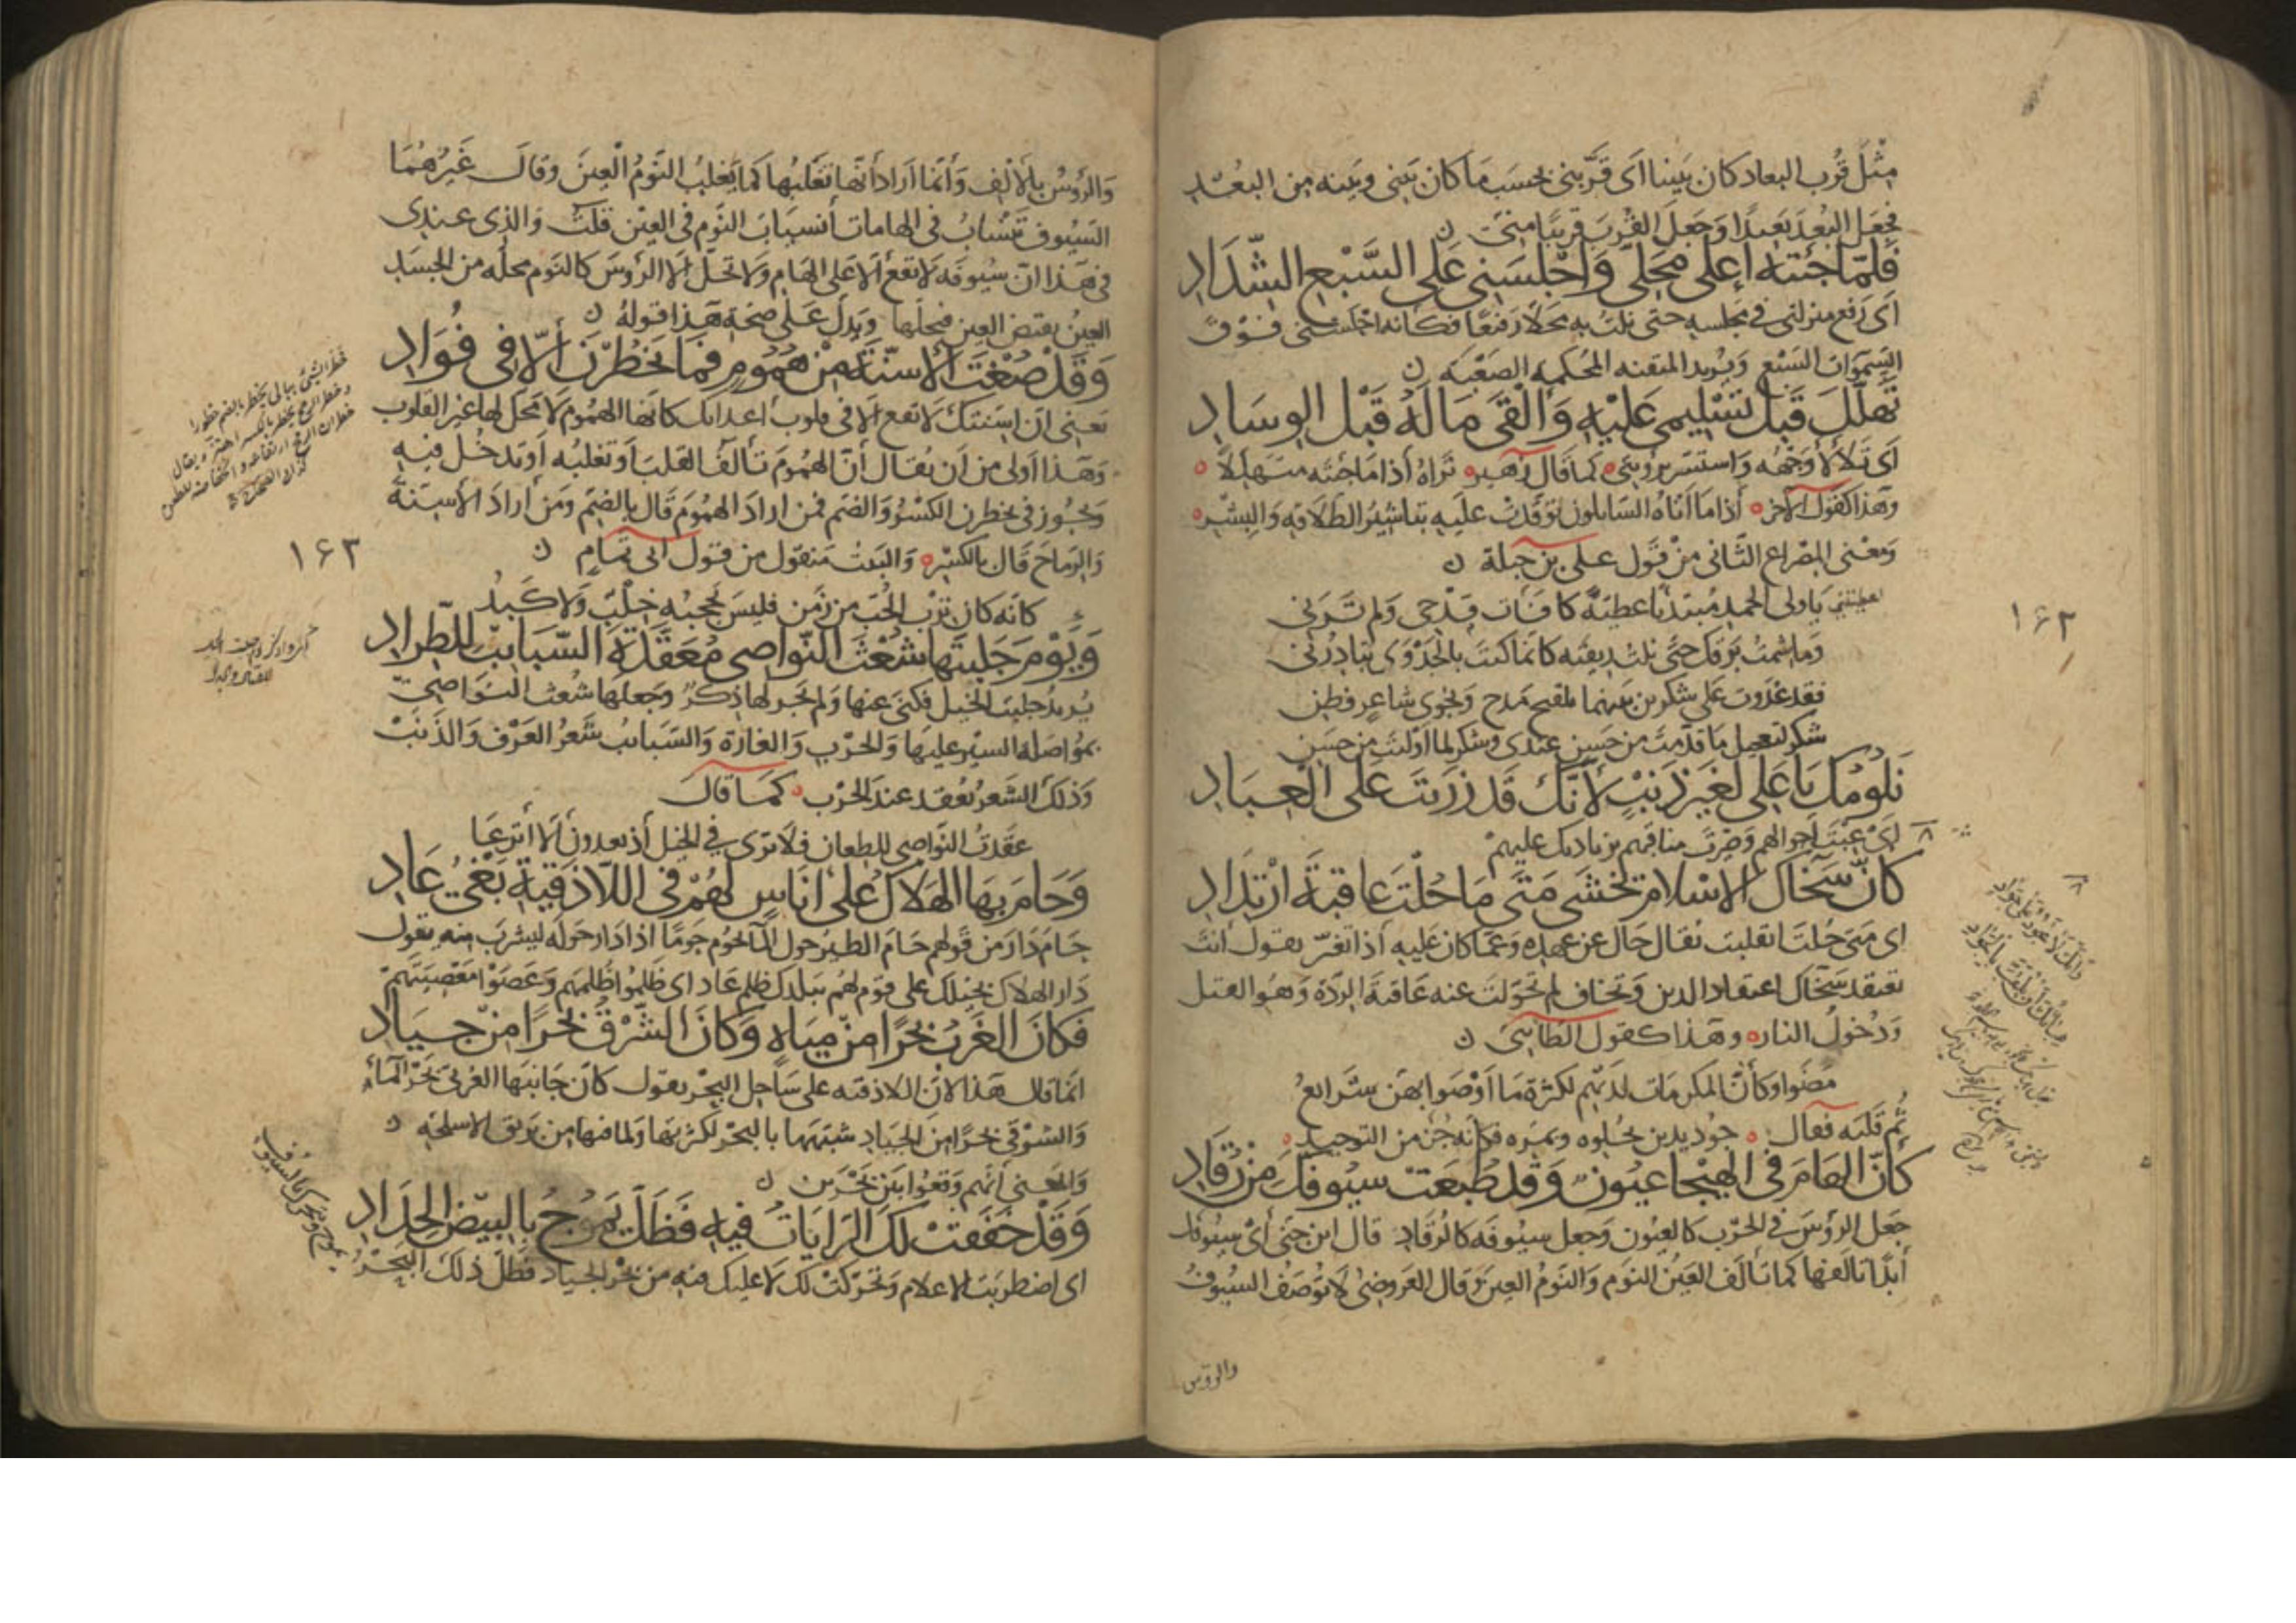 مثل قرب البعاد كان بيننا اى قربنى بحسب ما كان بينى وبينه من البعد
فجعل البعد بعيدا وجعل القرب قريبا منى
فلما جئته اعلى محلى واجلسنى على السبع الشداد
اى رفع منزلتى فى مجلسه حتى نلت به محلا رفيعا فكانه اجلسنى فوق
السموات السبع ويريد المتقنه المحكمه الصعبه
تهلل قبل تسليمى عليه والقى ماله قبل الوساد
اى تلألأ وجهه واستبشر برؤيتى كما قال زهير تراه اذا ما جئته متهللا
وهذا كقول الآخر اذا ما اتاه السايلون توقدت عليه تباشير الطلاقه والبشر
ومعنى المصراع الثانى من قول على بن جبلة
اعطيتنى يا ولى الحمد مبتدئا عطية كافأت مدحى ولم ترنى
وما شمت برقك حتى نلت ريقه كانما كنت بالجدوى تبادرنى
فقد غدوت على شكرين بينهما تلقيح مدح ونجوى شاعر فطن
شكر لتعجيل ما قدمت من حسن عندى وشكر لما اوليت من حسن
نلومك يا على لغير ذنب لأنك قد زريت على العباد
اى عبت احوالهم وصغرت مناقبهم بزيادتك عليهم
كأن سخاك الاسلام تخشى متى ما حلت عاقبة ارتداد
اى متى حلت انقلبت يقال حال عن عهده وعما كان عليه اذا تغير يقول انت
تعتقد سخاك اعتقاد الدين وتخاف لو تحولت عنه عاقبة الردة وهو القتل
ودخول النار وهذا كقول الطايى
مضوا وكأن المكرمات لديهم لكثرة ما اوصوا بهن شرائع
ثم قلبه فقال جود يدين بحلوه وبمره فكانه جزء من التوحيد
كأن الهام فى الهيجا عيون وقد طبعت سيوفك من رقاد
جعل الرؤس فى الحرب كالعيون وجعل سيوفه كالرقاد قال ابن جنى اى سيوفك
أبدا تألفها كما تألف العين النوم والنوم العين وقال العروضى لا توصف السيوف
والرؤس
١٦٢
والرؤس بالالف وانما اراد انها تغلبها كما يغلب النوم العين وقال غيرهما
السيوف تنساب فى الهامات أنسياب النوم فى العين قلت والذى عندى
فى هذا ان سيوفه لا تقع الا على الهام ولا تحل الا الرؤس كالنوم محله من الجسد
العين يقتض العين فيحلها ويدل على صحة هذا قوله
وقد صغت الأسنة من هموم فما يخطرن الا فى فؤاد
يعنى ان اسنتك لا تقع الا فى قلوب اعدائك كانها الهموم لا محل لها غير القلوب
وهذا اولى من ان يقال أن الهموم تألف القلب او تغلبه او تدخل فيه
ويجوز فى يخطرن الكسر والضم فمن اراد الهموم قال بالضم ومن أراد الأسنة
والرماح قال بالكسر والبيت منقول من قول ابى تمام
كانه كان ترب الحب من زمن فليس يحجبه خلب ولا كبد
ويوم جلبتها شعث النواصى معقدة السبايب للطراد
يريد جلبت الخيل فكنى عنها ولم يجر لها ذكر وجعلها شعث النواصى
بمواصلة السير عليها والحرب والغارة والسبايب شعر العرف والذنب
وذلك الشعر يعقد عند الحرب كما قال
عقدت النواصى للطعان فلا ترى فى الخيل اذ يعدون الا أنزعا
وحام بها الهلاك على اناس لهم فى اللاذقية بغى عاد
حام دار من قولهم حام الطير حول الماء يحوم حوما اذا دار حوله ليشرب منه يقول
دار الهلاك بخيلك على قوم لهم ببلدك ظلم عاد اى ظلموا ظلمهم وعصوا معصيتهم
فكان الغرب بحرا من مياه وكان الشرق بحرا من جياد
انما قال هذا لان اللاذقيه على ساحل البحر يقول كان جانبها الغربى بحر الماء
والشرقى بحرا من الجياد شبهها بالبحر لكثرتها ولما فيها من بريق الاسلحه
والمعنى أنهم وقعوا بين بحرين
وقد خفقت لك الرايات فيه فظل يموج بالبيض الحداد
اى اضطربت الاعلام وتحركت لك لا عليك فيه من بحر الجياد فظل ذلك البحر
يموج ويتحرك بالسيوف
١٦٣